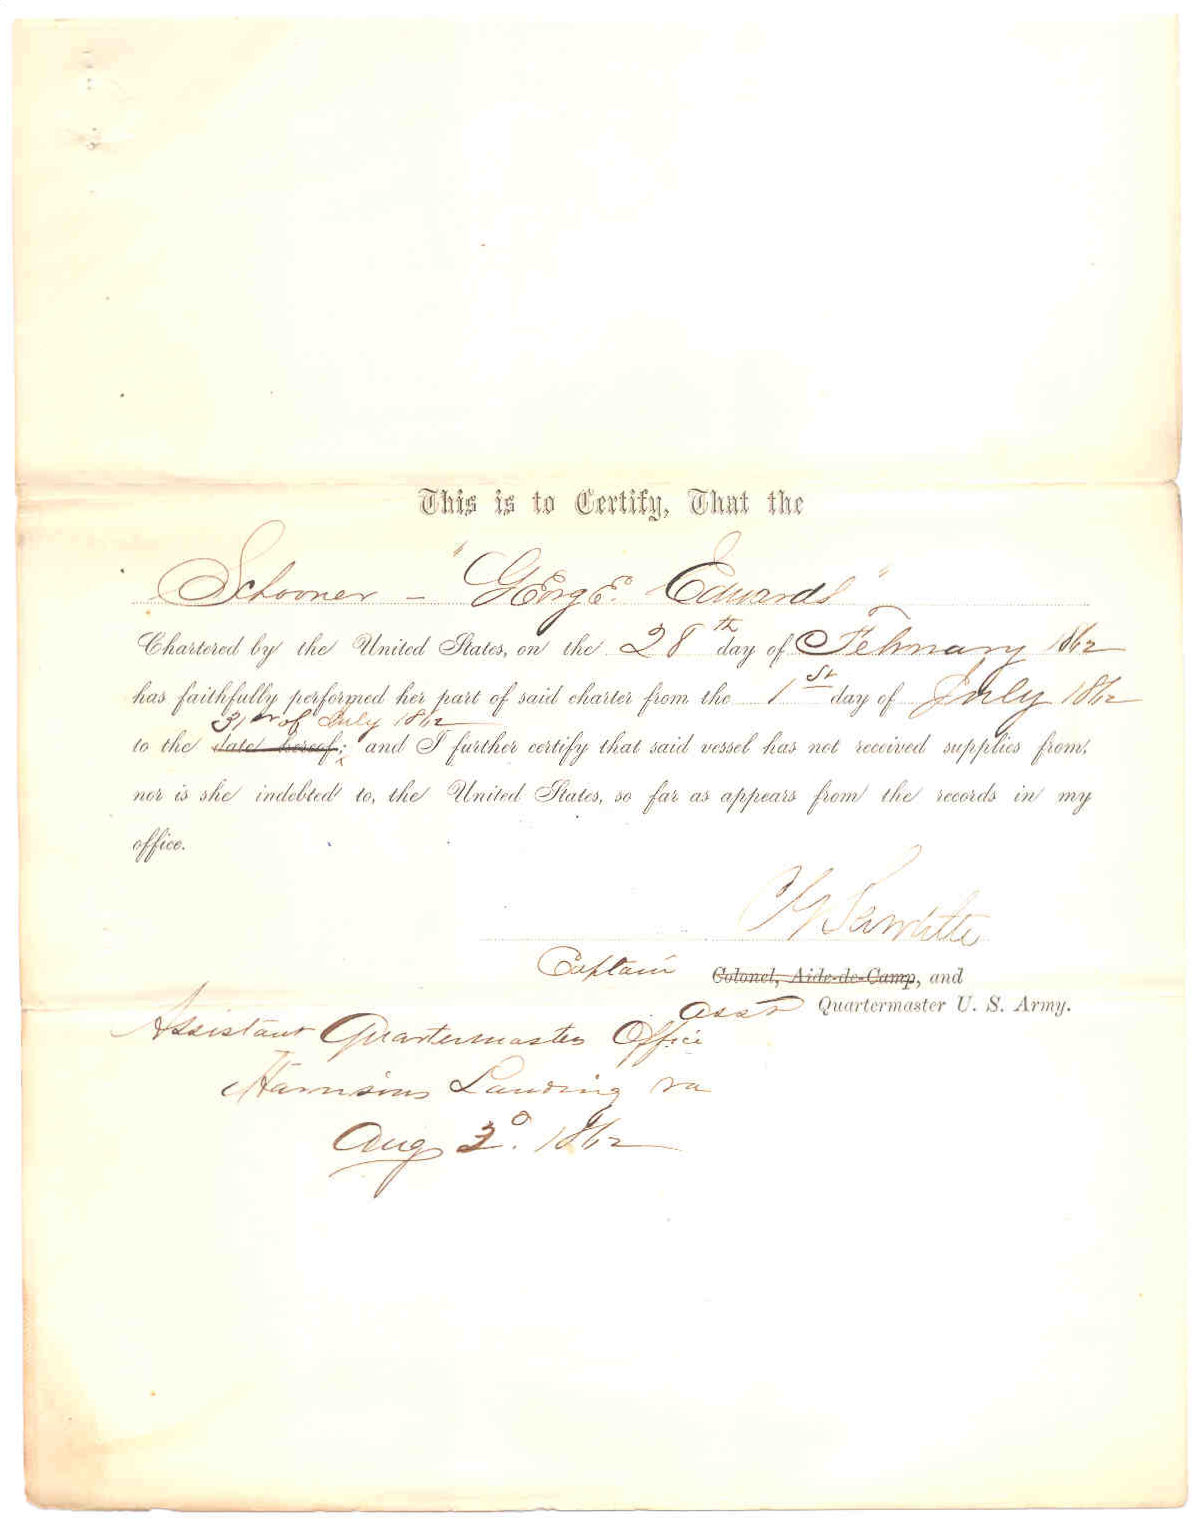 This is to Certify, That the
Schooner – "George Edwards"
Chartered by the United States, on the 28th day of February 1862
has faithfully performed her part of said charter from the 1st day of July 1862
31st of July 1862
to the date hereof; and I further certify that said vessel has not received supplies from,
nor is she indebted to, the United States, so far as appears from the records in my
office.
C G Sawtelle
Captain Colonel, Aide-de-Camp, and
Asst Quartermaster U. S. Army.
Assistant Quartermasters Office
Harrisons Landing Va
Aug 3d. 1862